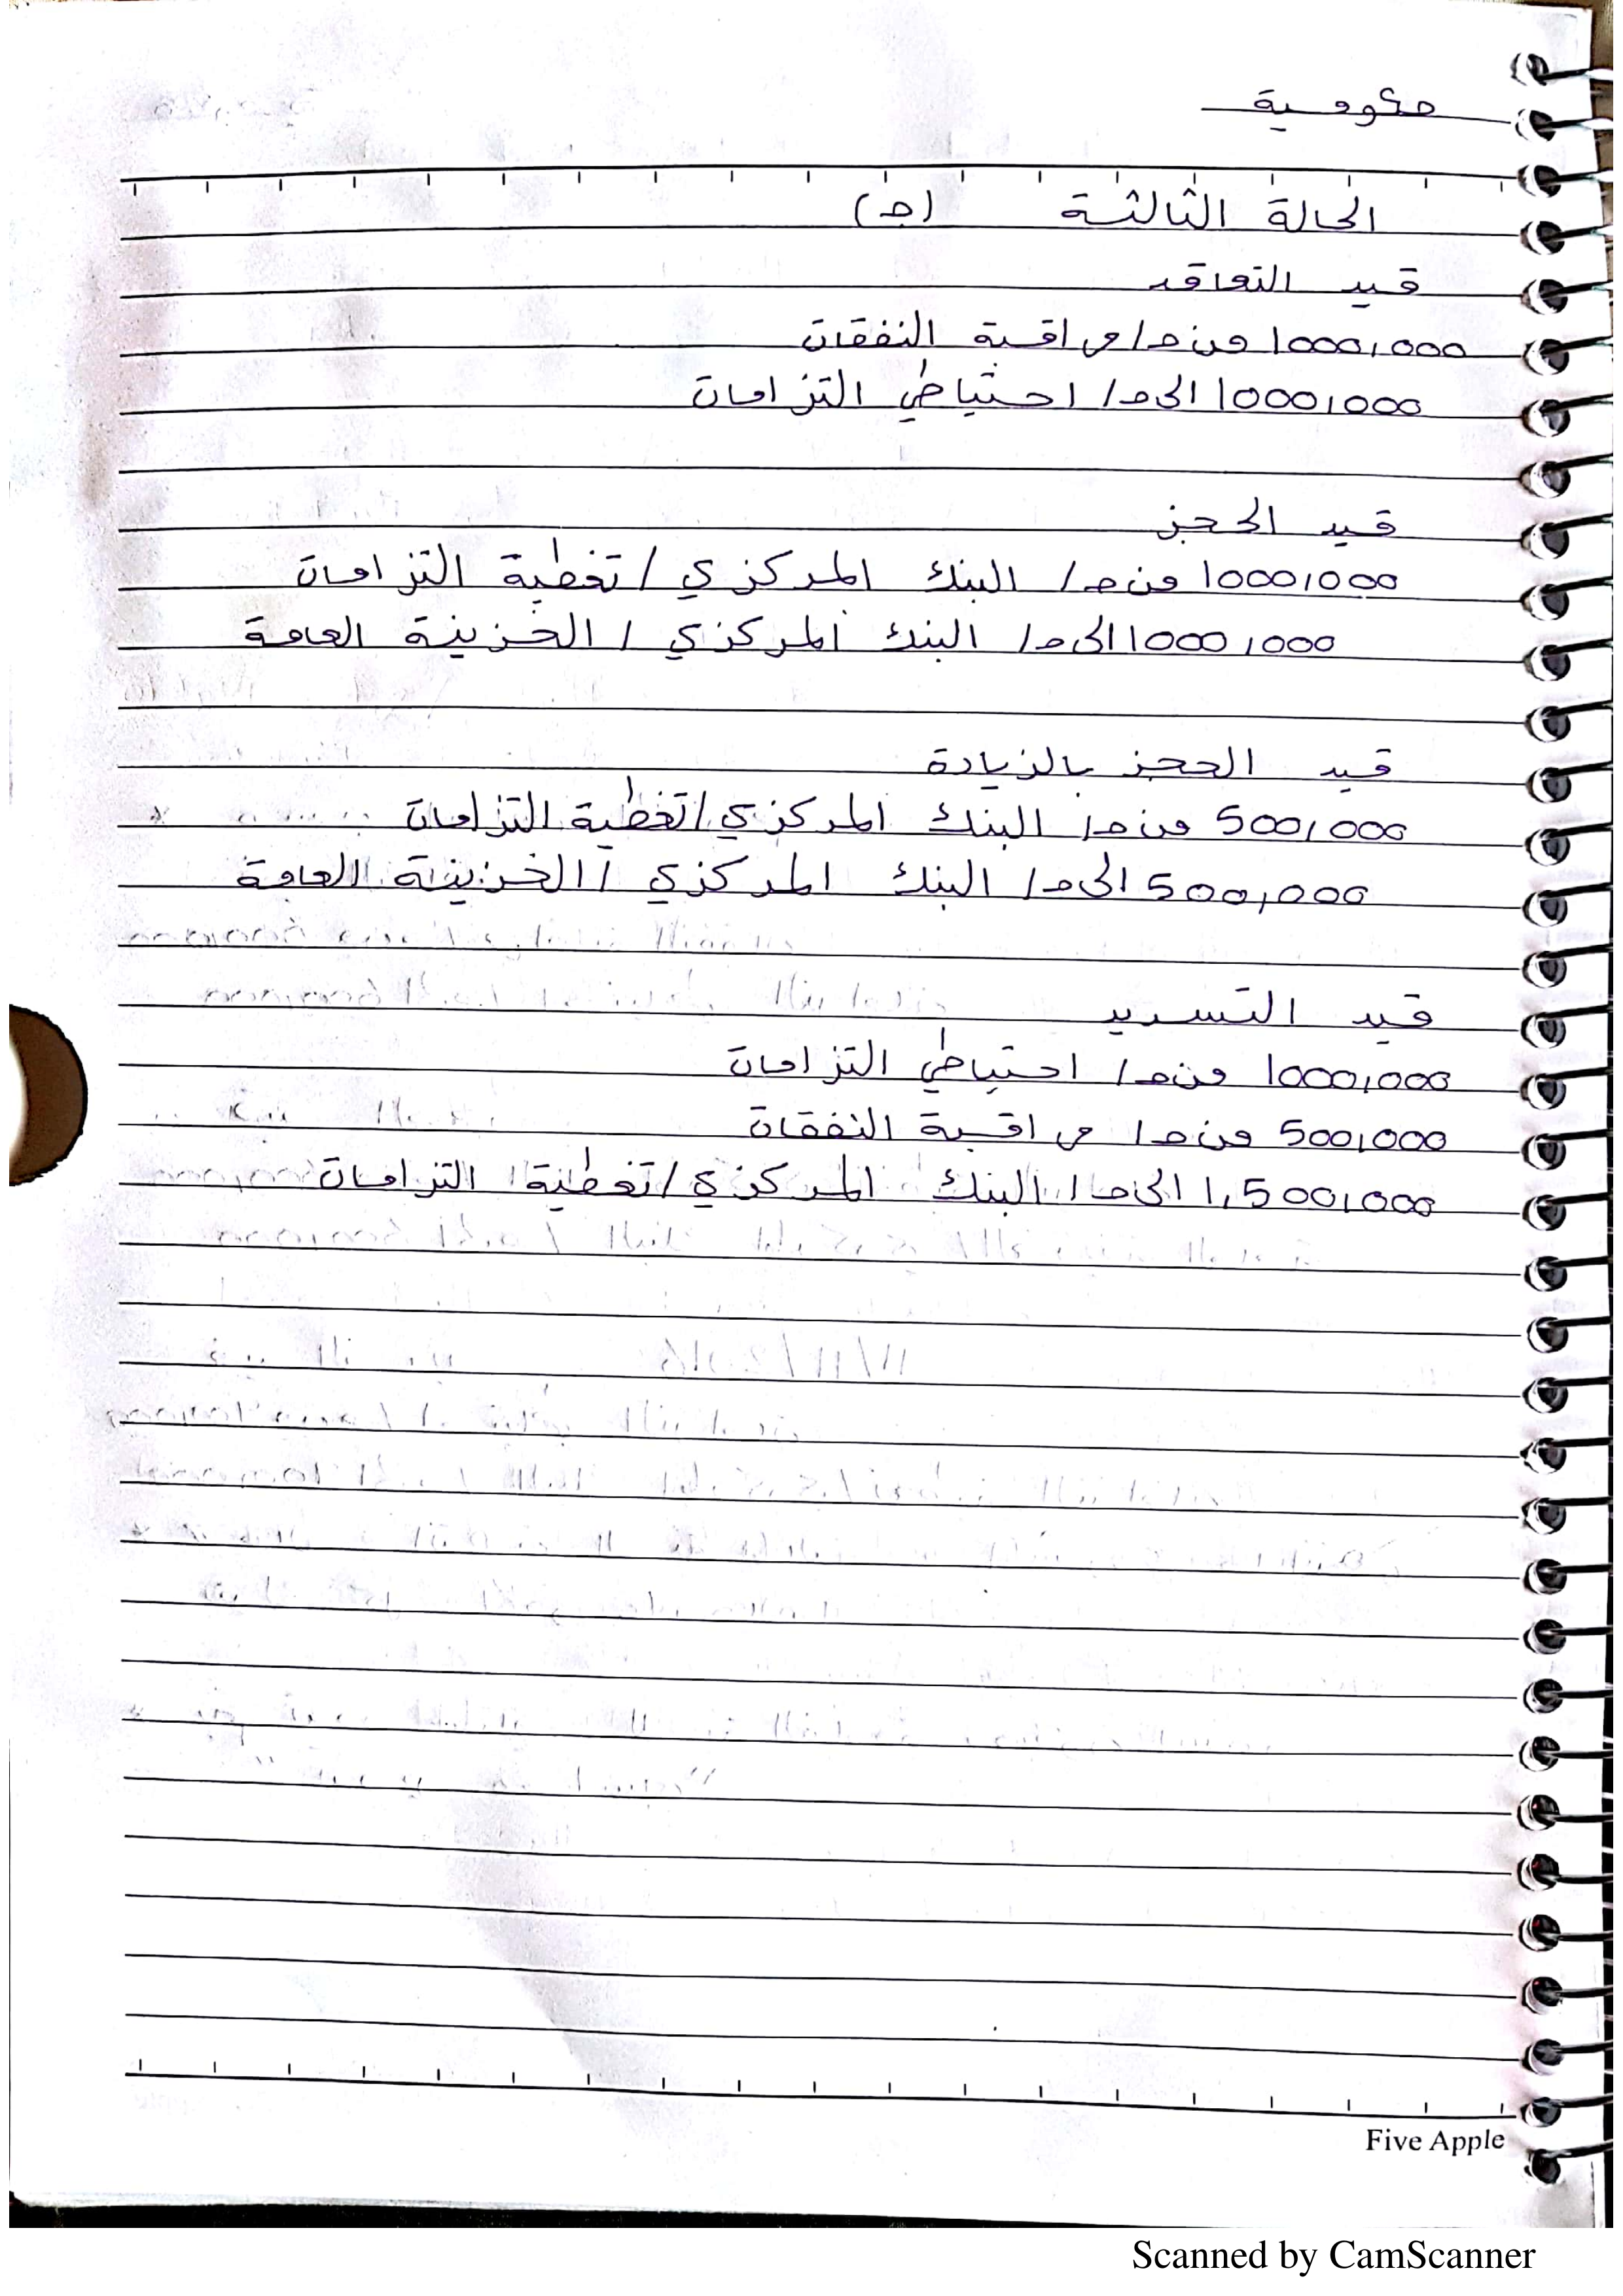 حكومية
الحالة الثالثة (ج)
قيد التعاقد
1000,000 من ح/ مراقبة النفقات
1000,000 الى ح/ احتياطي التزامات
قيد الحجز
1000,000 من ح/ البنك المركزي / تغطية التزامات
1000,000 الى ح/ البنك المركزي / الخزينة العامة
قيد الحجز بالزيادة
500,000 من ح/ البنك المركزي / تغطية التزامات
500,000 الى ح/ البنك المركزي / الخزينة العامة
قيد التسديد
1000,000 من ح/ احتياطي التزامات
500,000 من ح/ مراقبة النفقات
1,500,000 الى ح/ البنك المركزي / تغطية التزامات
Five Apple
Scanned by CamScanner